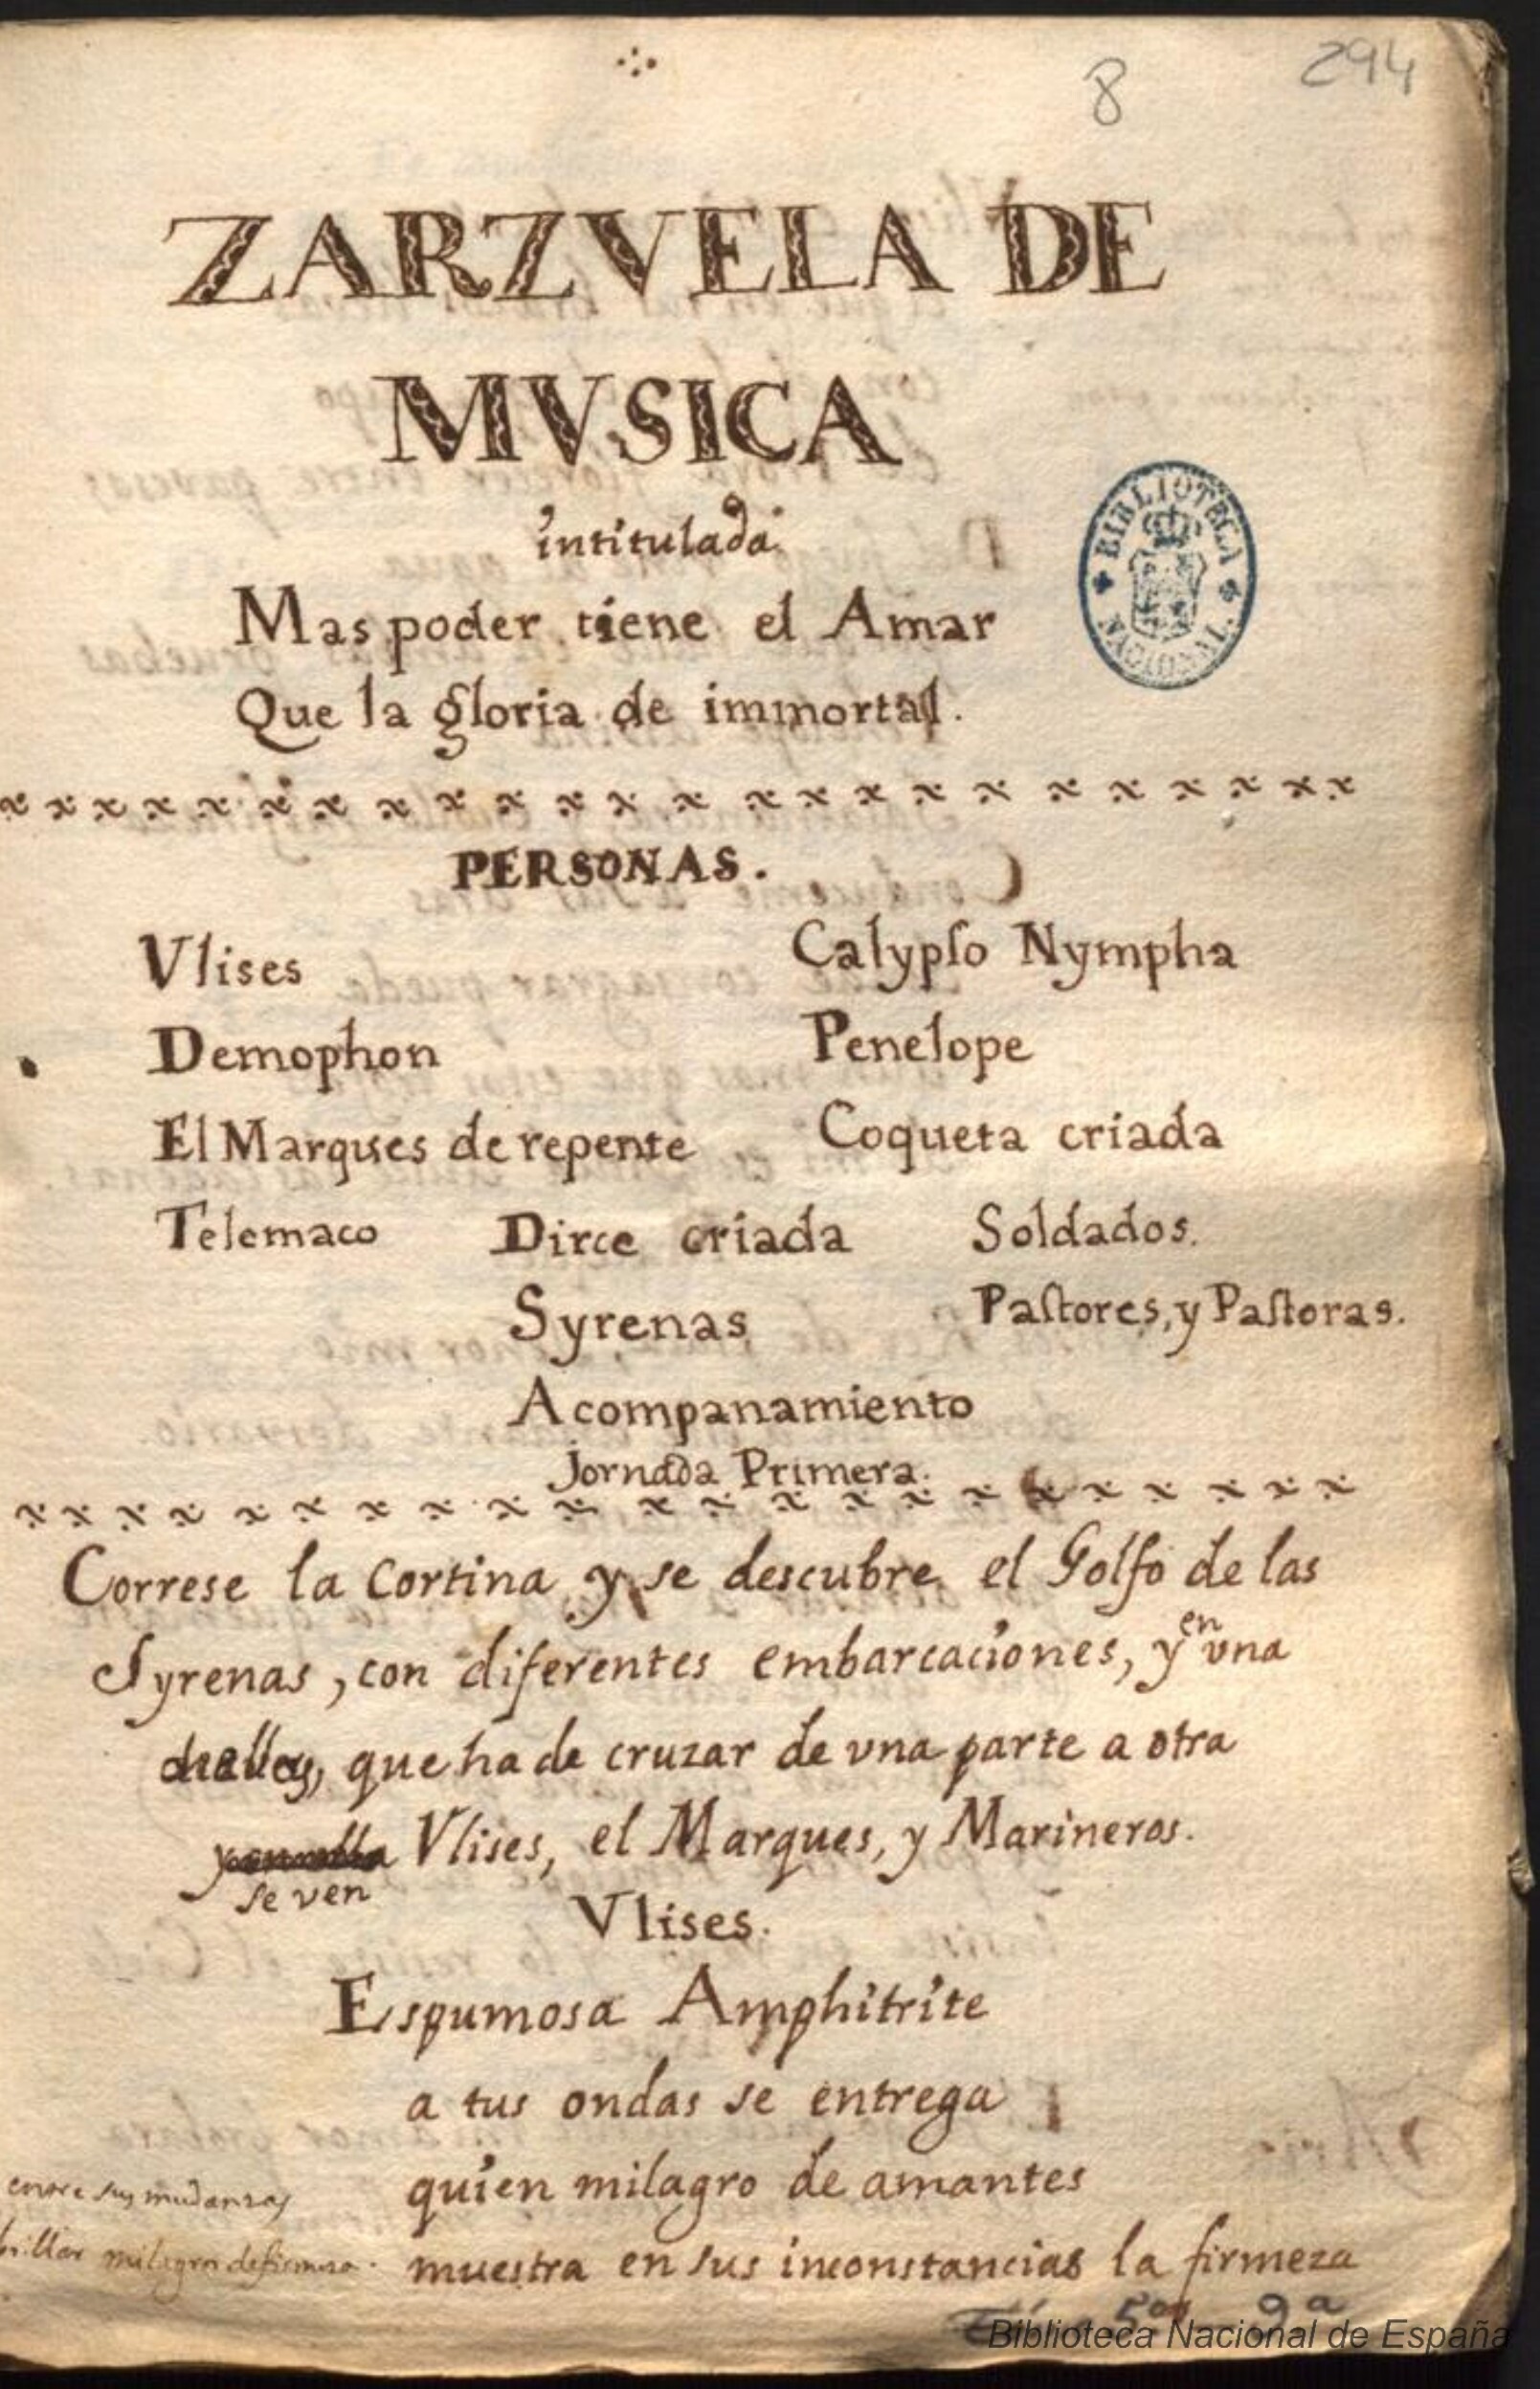 8 294
ZARZVELA DE
MVSICA
intitulada
Mas poder tiene el Amar
Que la gloria de immortal.
BIBLIOTECA NACIONAL.
PERSONAS.
Vlises Calypſo Nympha
Demophon Penelope
El Marques de repente Coqueta criada
Telemaco Dirce criada Soldados.
Syrenas Paſtores, y Paſtoras.
Acompanamiento
Jornada Primera.
Correse la Cortina y se descubre el Golfo de las
Syrenas, con diferentes embarcaciones, y en vna
que ha de cruzar de vna parte a otra
Vlises, el Marques, y Marineros.
se ven
Vlises.
Espumosa Amphitrite
a tus ondas se entrega
quien milagro de amantes
muestra en sus inconstancias la firmeza
entre sus mudanzas
milagro de firmeza.
9a
Biblioteca Nacional de España